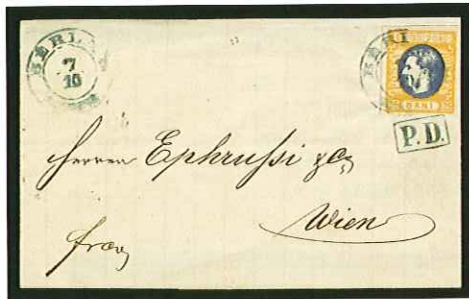 BERLAD
7
10
BERL
BANI
P.D.
Herren Ephrussi & Co
Wien
franco